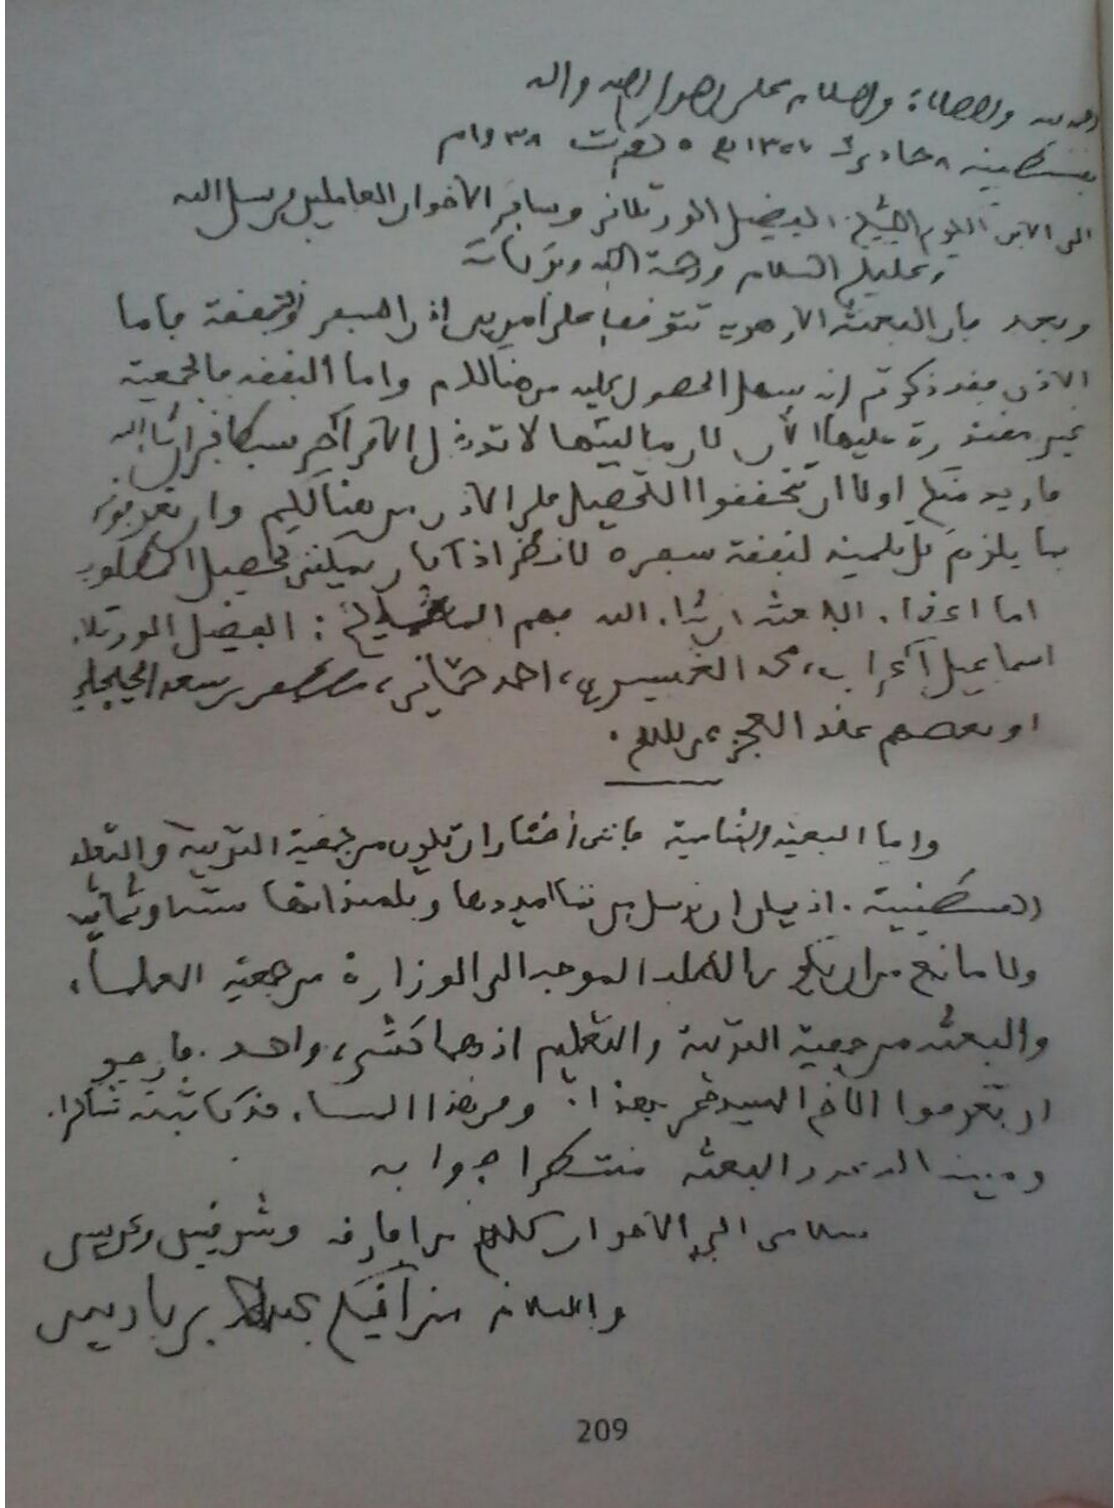 الحمد لله والصلاة والسلام على رسول الله واله
بقسنطينة ٨ جمادى ١٣٥٧ ٥ ٣٨ م
الى الابن الشيخ الفضيل الورتلاني وسائر الاخوان العاملين في سبيل الله
وعليكم السلام ورحمة الله وبركاته
وبعد فان البعثة الازهرية تتوقف على امرين اذن السفر والنفقة فاما
الاذن فقد ذكرتم انه يسهل الحصول عليه من هنالكم واما النفقة فالجمعية
غير مقتدرة عليها الآن لان ماليتها لا
فاريد منكم اولا ان تتحققوا التحصيل على الاذن من هنالكم وان تعرفوني
بما يلزم كل تلميذ لنفقة سفره لانظر اذا كان يمكنني تحصيل المطلوب
اما اعضاء البعثة ان شاء الله فهم المشايخ: الفضيل الورتلاني
اسماعيل ، محمد الغسيري، احمد حماني، بن سعد الجيجلي
او بعضهم عند العجز عن كلهم.
واما البعثة الشامية فانني أختار ان تكون من جمعية التربية والتعليم
القسنطينية. اذ يمكن ان نرسل من تلاميذها وتلميذاتها
ولا مانع من ان يكون الطلب الموجه الى الوزارة من جمعية العلماء،
والبعثة من جمعية التربية والتعليم اذ هما كشيء واحد. فارجو
ان تعرفوا الاخ السيد بهذا. ومن هذا المساء
ومبينا له عدد البعثة منتظرا جوابه
سلامي الى الاخوان كلهم من افارقة وشرقيين وغربيين
والسلام من أخيكم عبد الحميد بن باديس
209